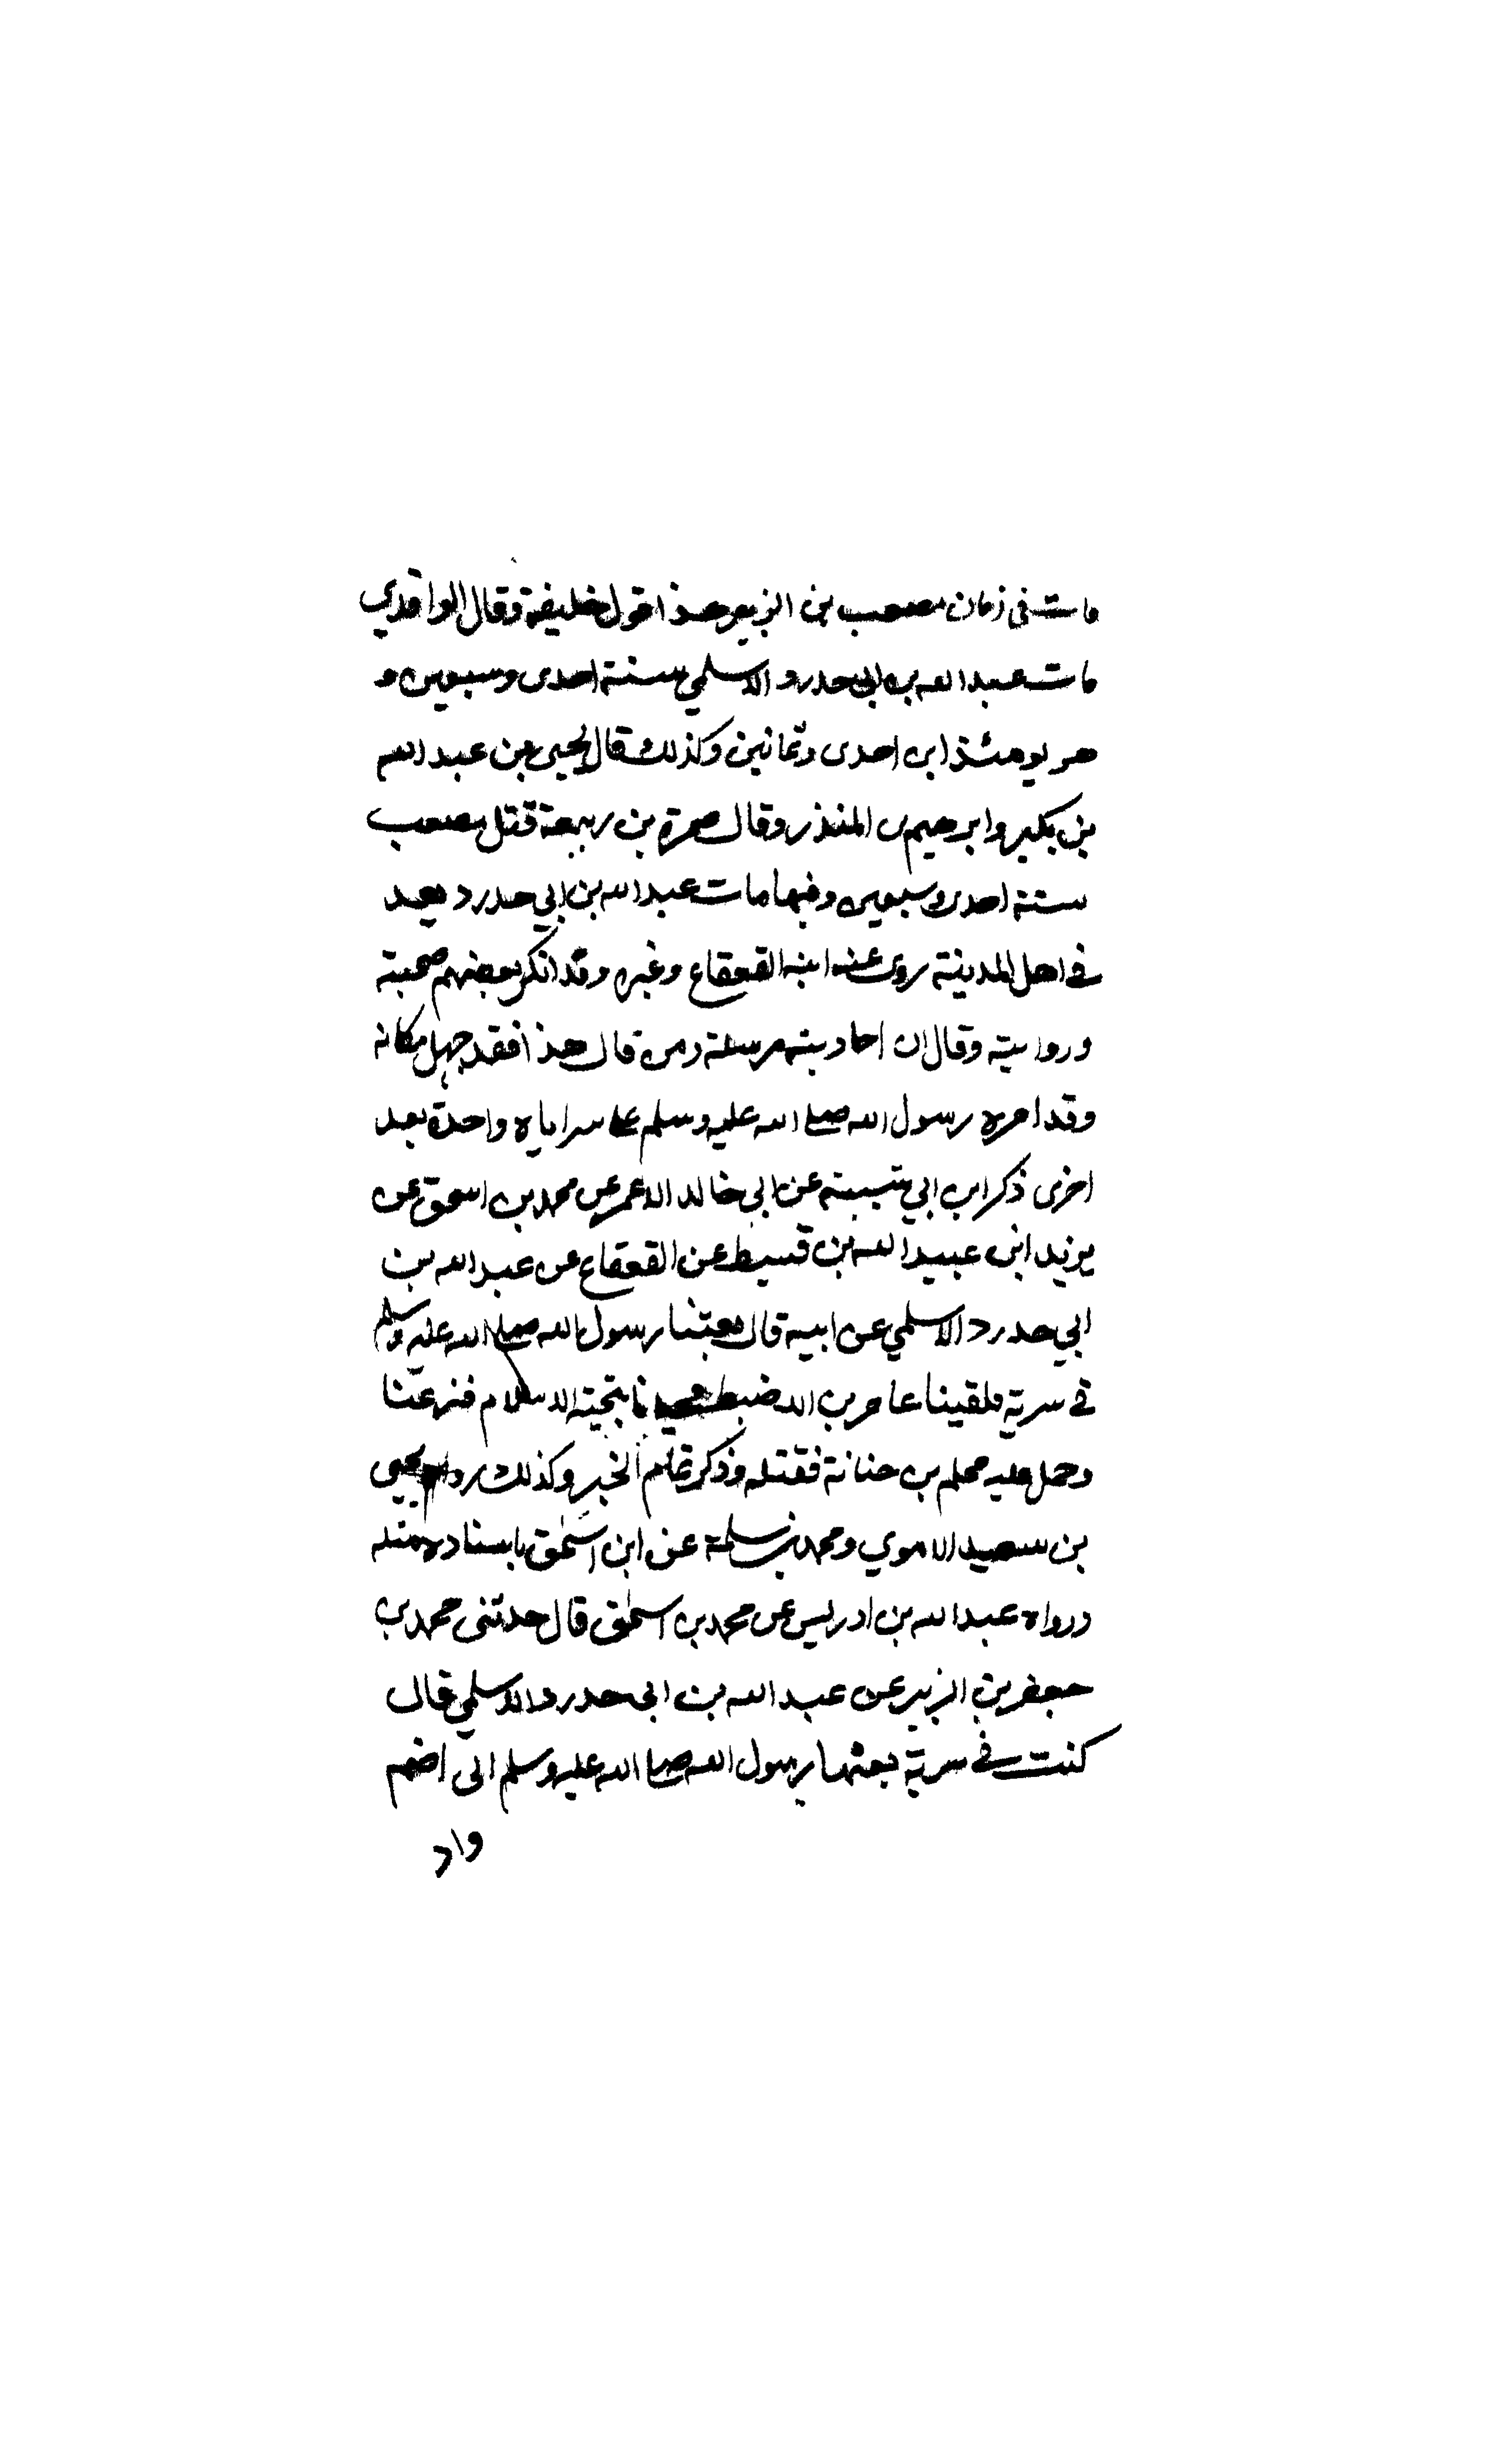 مات فى زمان مصعب بن الزبير هذا قول خليفة وقال الواقدي
مات عبد الله بن ابي حدرد الاسلمي سنة احدى وسبعين و
هو يومئذ ابن احدى وثمانين وكذلك قال يحيى بن عبد الله
بن بكير وابرهيم بن المنذر وقال ضمرة بن ربيعة قتل مصعب
سنة احدى وسبعين وفيها مات عبد الله بن ابي حدرد يعد
في اهل المدينة روى عنه ابنه القعقاع وغيره وقد انكر بعضهم صحبته
وروايته وقال ان احاديثه مرسلة ومن قال هذا فقد جهل مكانه
وقد امره رسول الله صلى الله عليه وسلم على سراياه واحدة بعد
اخرى ذكر ابن ابي شيبة عن ابي خالد الاحمر عن محمد بن اسحق عن
يزيد ابن عبيد الله بن قسيط عن القعقاع عن عبد الله بن
ابي حدرد الاسلمي عن ابيه قال بعثنا رسول الله صلى الله عليه وسلم
في سرية فلقينا عامر بن الاضبط فحيانا بتحية الاسلام فنزعنا
وحمل عليه محلم بن جثامة فقتله وذكر تمام الخبر وكذلك رواه يحيى
بن سعيد الاموي ومحمد بن سلمة عن ابن اسحق باسناده مثله
ورواه عبد الله بن ادريس عن محمد بن اسحق قال حدثنى محمد بن
جعفر بن الزبير عن عبد الله بن ابى حدرد الاسلمي قال
كنت في سرية بعثها رسول الله صلى الله عليه وسلم الى اضم
واد